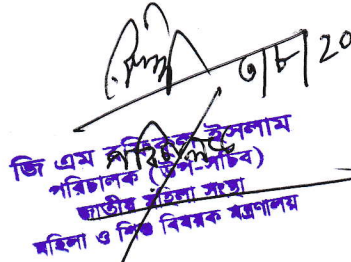 ৩।৮।20
জি এম রফিকুল ইসলাম
পরিচালক (উপ-সচিব)
জাতীয় মহিলা সংস্থা
মহিলা ও শিশু বিষয়ক মন্ত্রণালয়